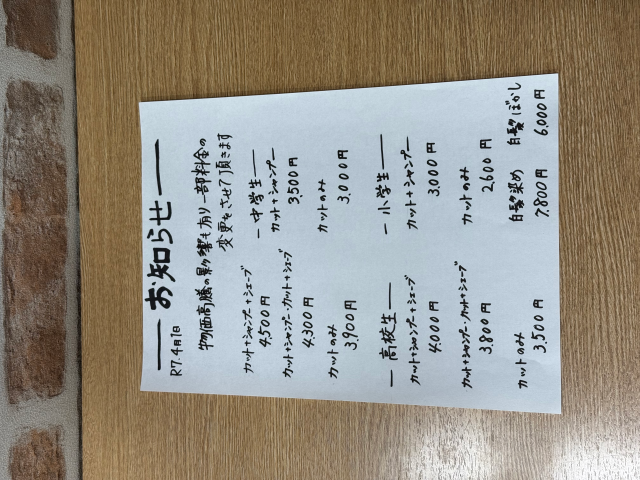 お知らせ
R7.4月1日
物価高騰の影響も有り一部料金の
変更をさせて頂きます
カット+シャンプー+シェーブ
4,500円
カット+シャンプー・カット+シェーブ
4,300円
カットのみ
3,900円
ー高校生ー
カット+シャンプー+シェーブ
4,000円
カット+シャンプー・カット+シェーブ
3,800円
カットのみ
3,500円
ー中学生ー
カット+シャンプー
3,500円
カットのみ
3,000円
ー小学生ー
カット+シャンプー
3,000円
カットのみ
2,600円
白髪染め
7,800円
白髪ぼかし
6,000円